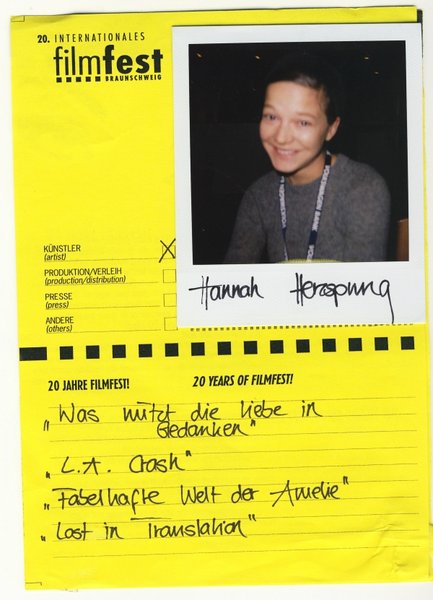 20. INTERNATIONALES
filmfest
BRAUNSCHWEIG
KÜNSTLER
(artist)
X
PRODUKTION/VERLEIH
(production/distribution)
PRESSE
(press)
ANDERE
(others)
Hannah Herzsprung
20 JAHRE FILMFEST!
20 YEARS OF FILMFEST!
„Was nützt die Liebe in
Gedanken"
„L.A. Crash"
„Fabelhafte Welt der Amelie"
„Lost in Translation"